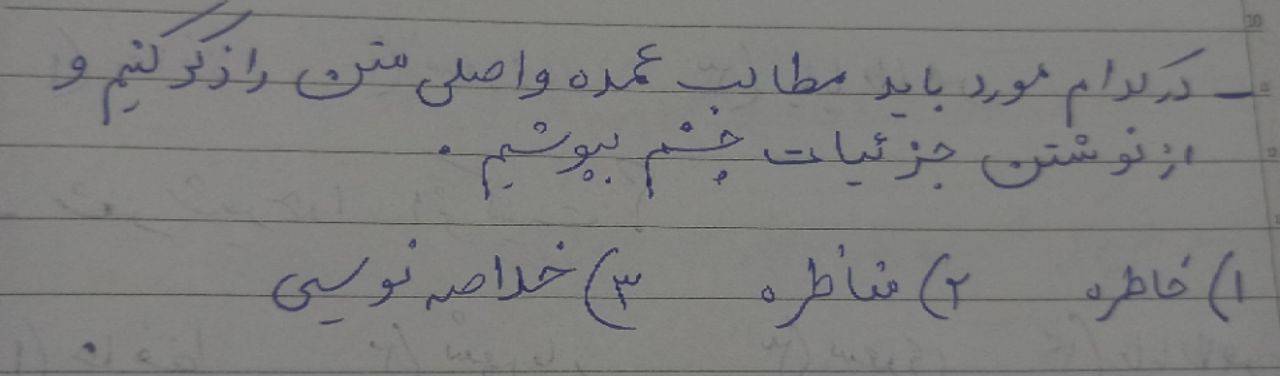 - در کدام مورد باید مطالب عمده و اصلی متن را ذکر کنیم و
از نوشتن جزئیات چشم بپوشیم.
۱) خاطره ۲) مناظره ۳) خلاصه نویسی